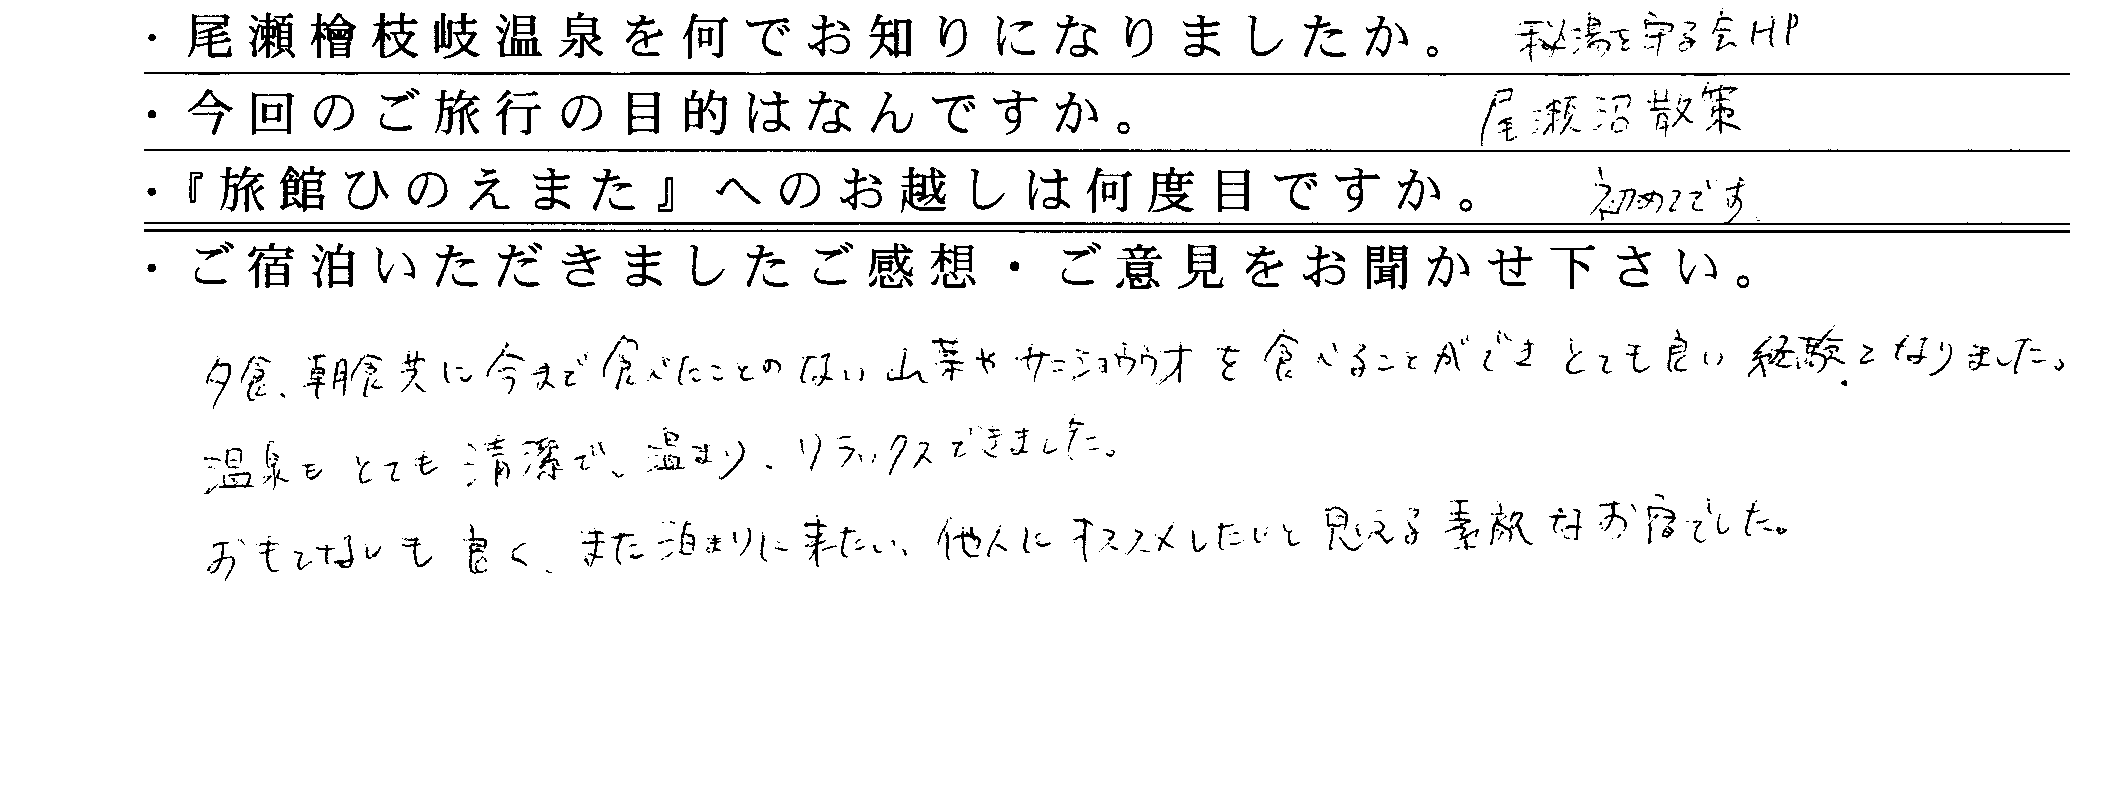 ・尾瀬檜枝岐温泉を何でお知りになりましたか。 秘湯を守る会HP
・今回のご旅行の目的はなんですか。 尾瀬沼散策
・『旅館ひのえまた』へのお越しは何度目ですか。 初めてです。
・ご宿泊いただきましたご感想・ご意見をお聞かせ下さい。
夕食、朝食共に今まで食べたことのない山菜やサンショウウオを食べることができとても良い経験となりました。
温泉もとても清潔で、温まり、リラックスできました。
おもてなしも良く、また泊まりに来たい、他人にオススメしたいと思える素敵なお宿でした。